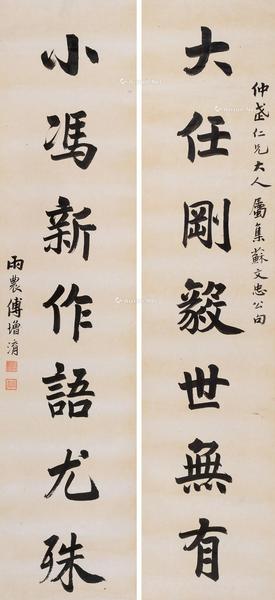 仲茋仁兄大人屬集蘇文忠公句
大任剛毅世無有
小馮新作語尤殊
雨農傅增淯